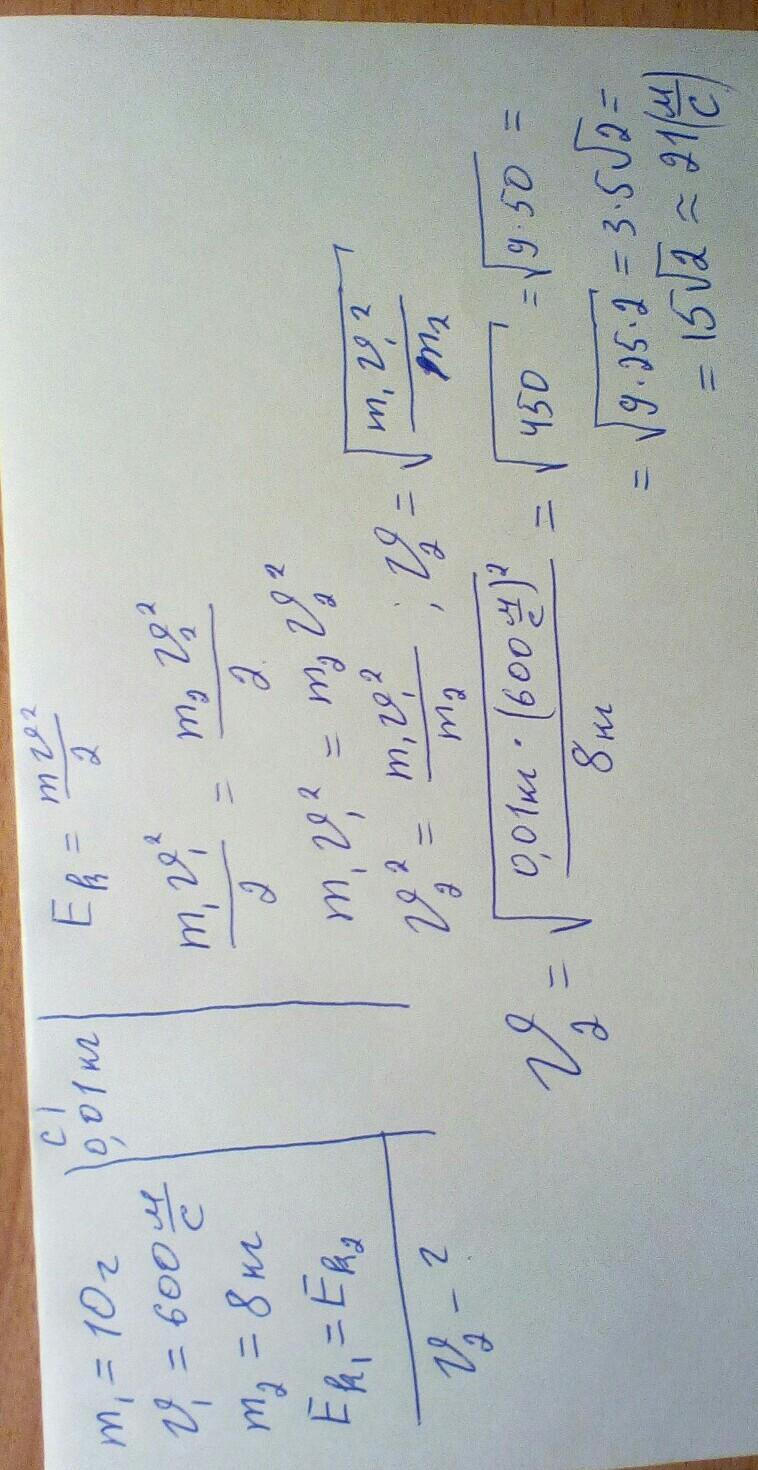 m₁ = 10г
υ₁ = 600 м/с
m₂ = 8 кг
Eк₁ = Eк₂
υ₂ - ?
СИ
0,01 кг
Eк = mυ²/2
m₁υ₁²/2 = m₂υ₂²/2
m₁υ₁² = m₂υ₂²
υ₂² = m₁υ₁²/m₂ ; υ₂ = √(m₁υ₁²/m₂)
υ₂ = √(0,01кг · (600 м/с)²/8 кг) = √450 = √9·50 =
= √9·25·2 = 3·5√2 =
= 15√2 ≈ 21(м/с)